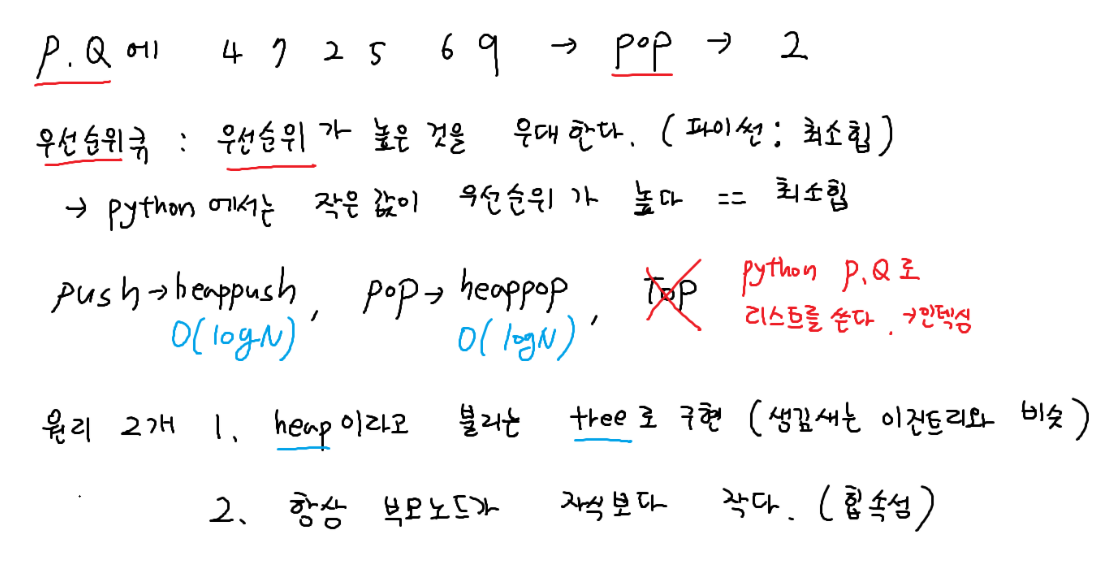 P.Q에 4 7 2 5 6 9 → pop → 2
우선순위큐 : 우선순위가 높은 것을 우대한다. (파이썬 : 최소힙)
→ python에서는 작은 값이 우선순위가 높다 == 최소힙
push → heappush, pop → heappop, Top python P.Q로
O(logN) O(logN) 리스트를 쓴다. → 인덱싱
원리 2개 1. heap이라고 불리는 tree로 구현 (생김새는 이진트리와 비슷)
2. 항상 부모노드가 자식보다 작다. (힙속성)